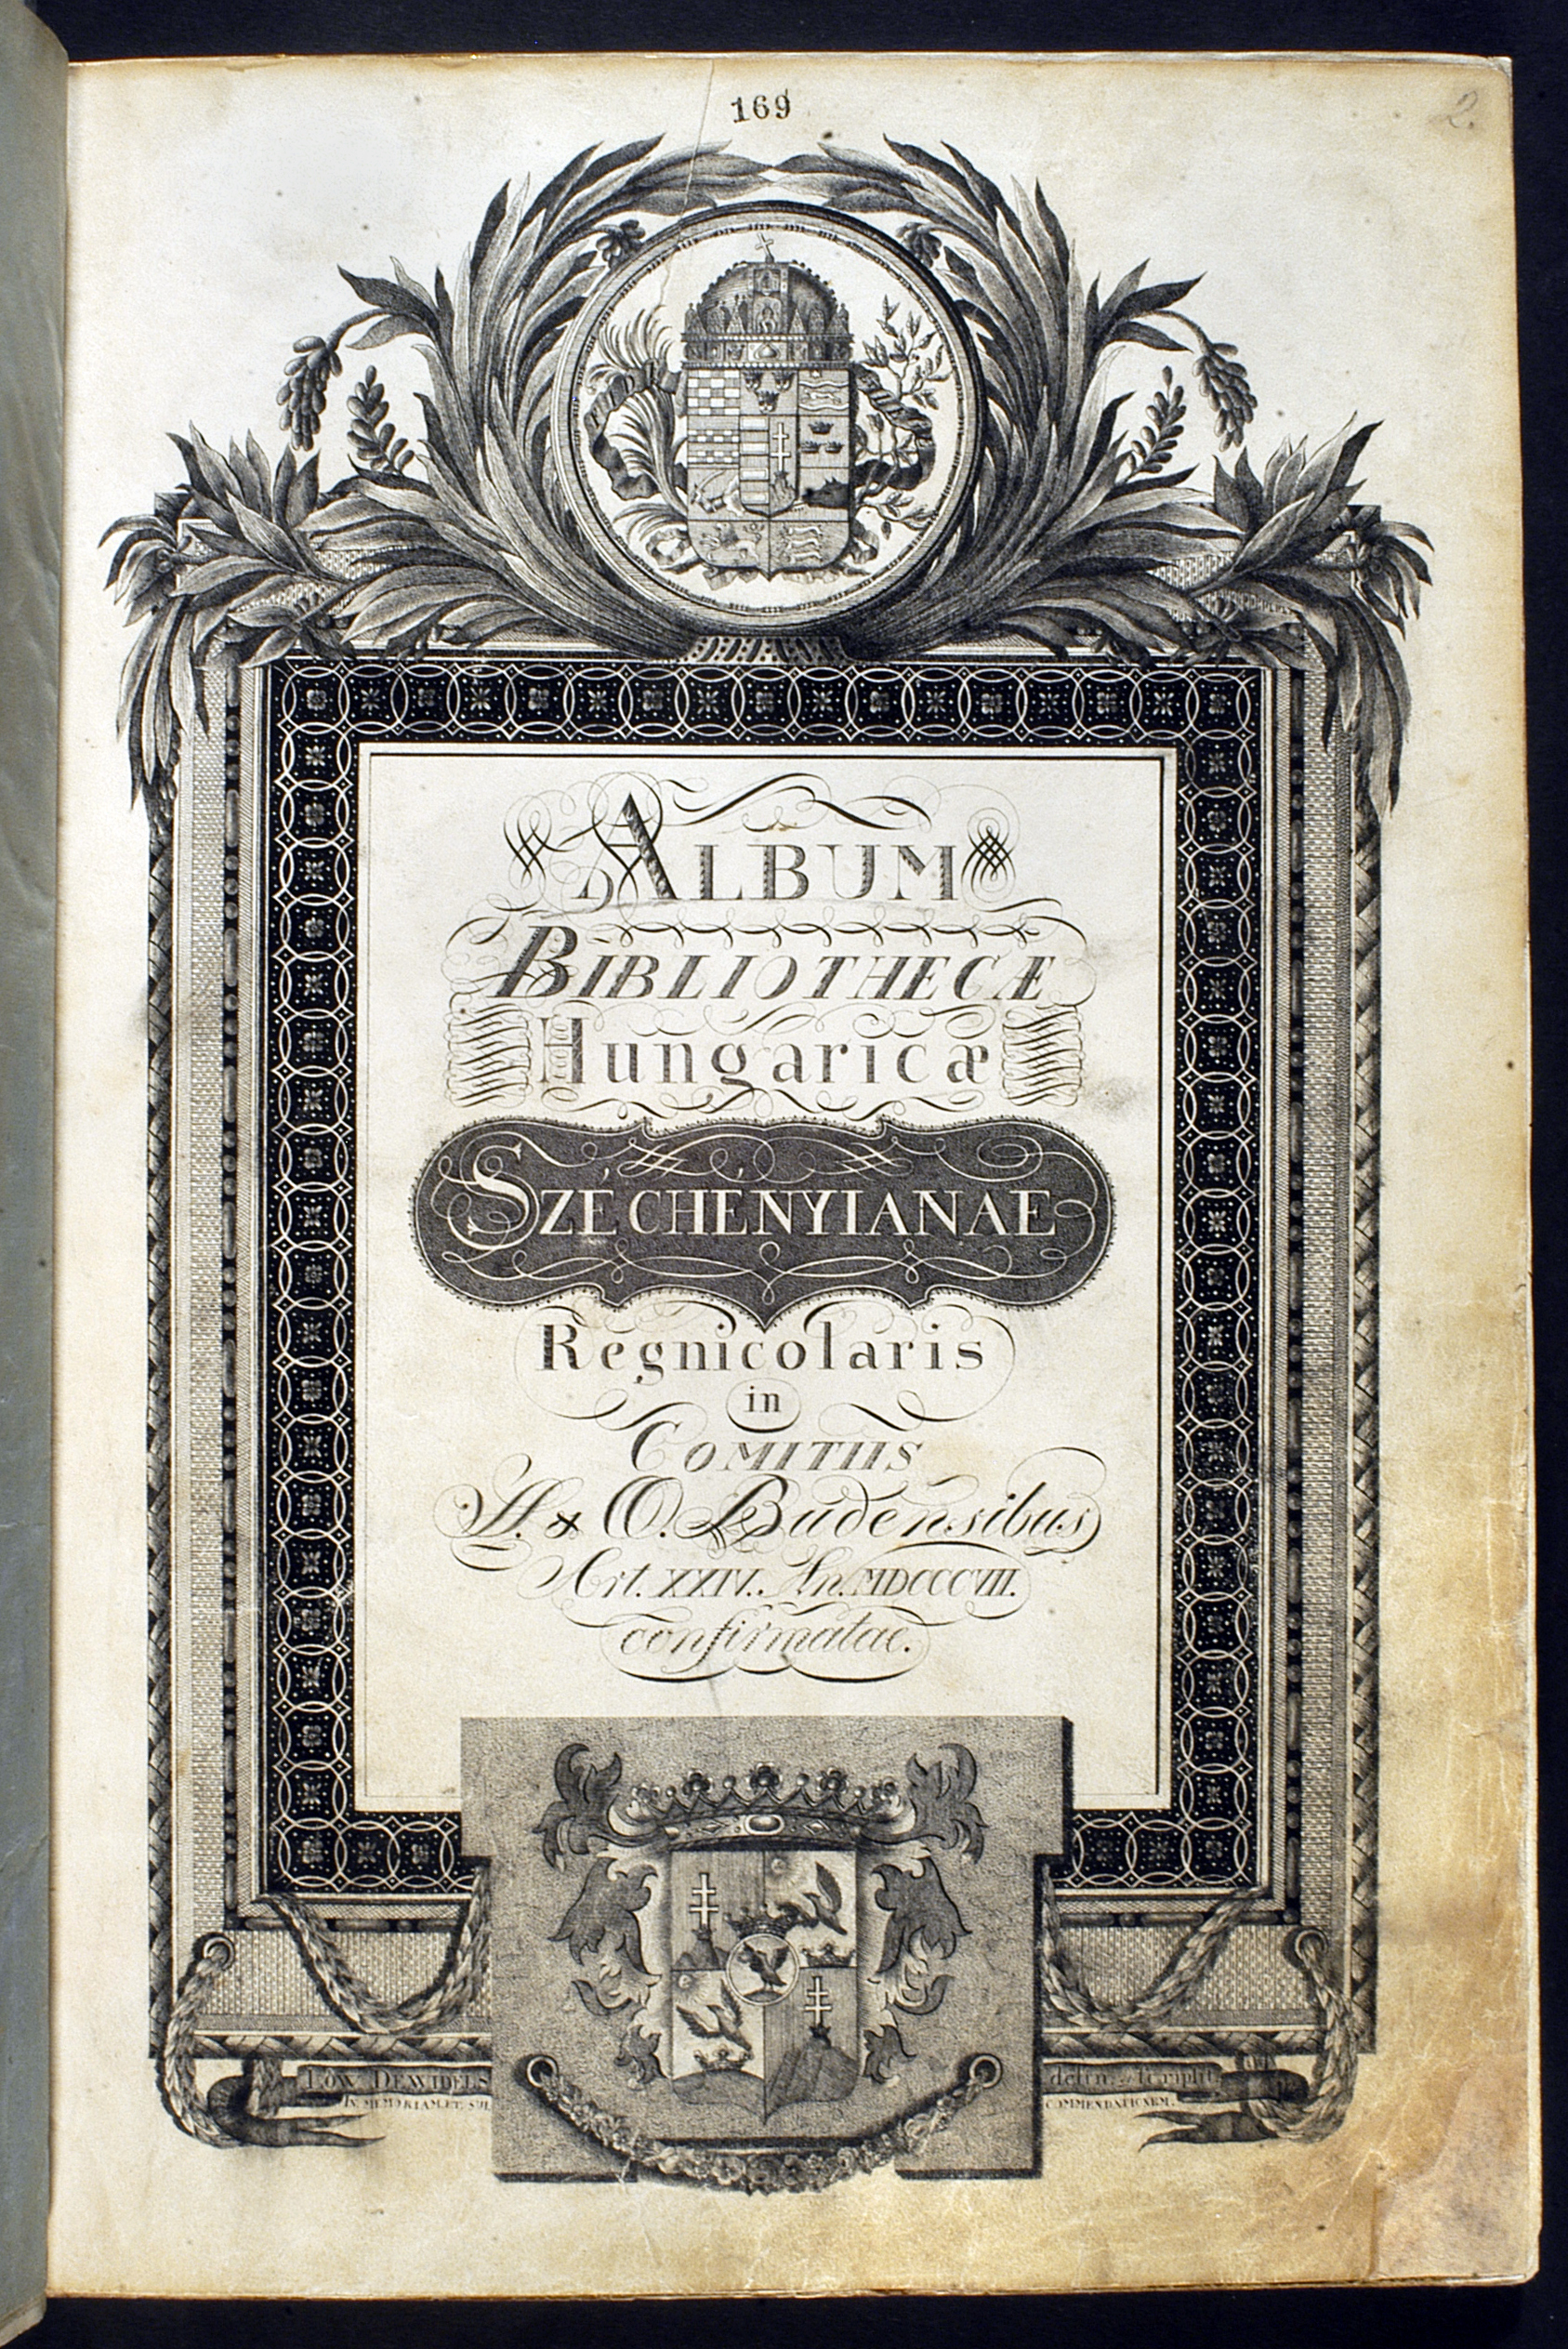 169
2.
ALBUM
BIBLIOTHECÆ
Hungaricæ
SZÉCHÉNYIANAE
Regnicolaris
in
COMITIIS
A. & O. Budensibus
Art. XXIV. An. MDCCCVII.
confirmatae.
LÖW DEWIDELS delin. & scripsit
IN MEMORIAM ET SUI COMMENDATIONEM.